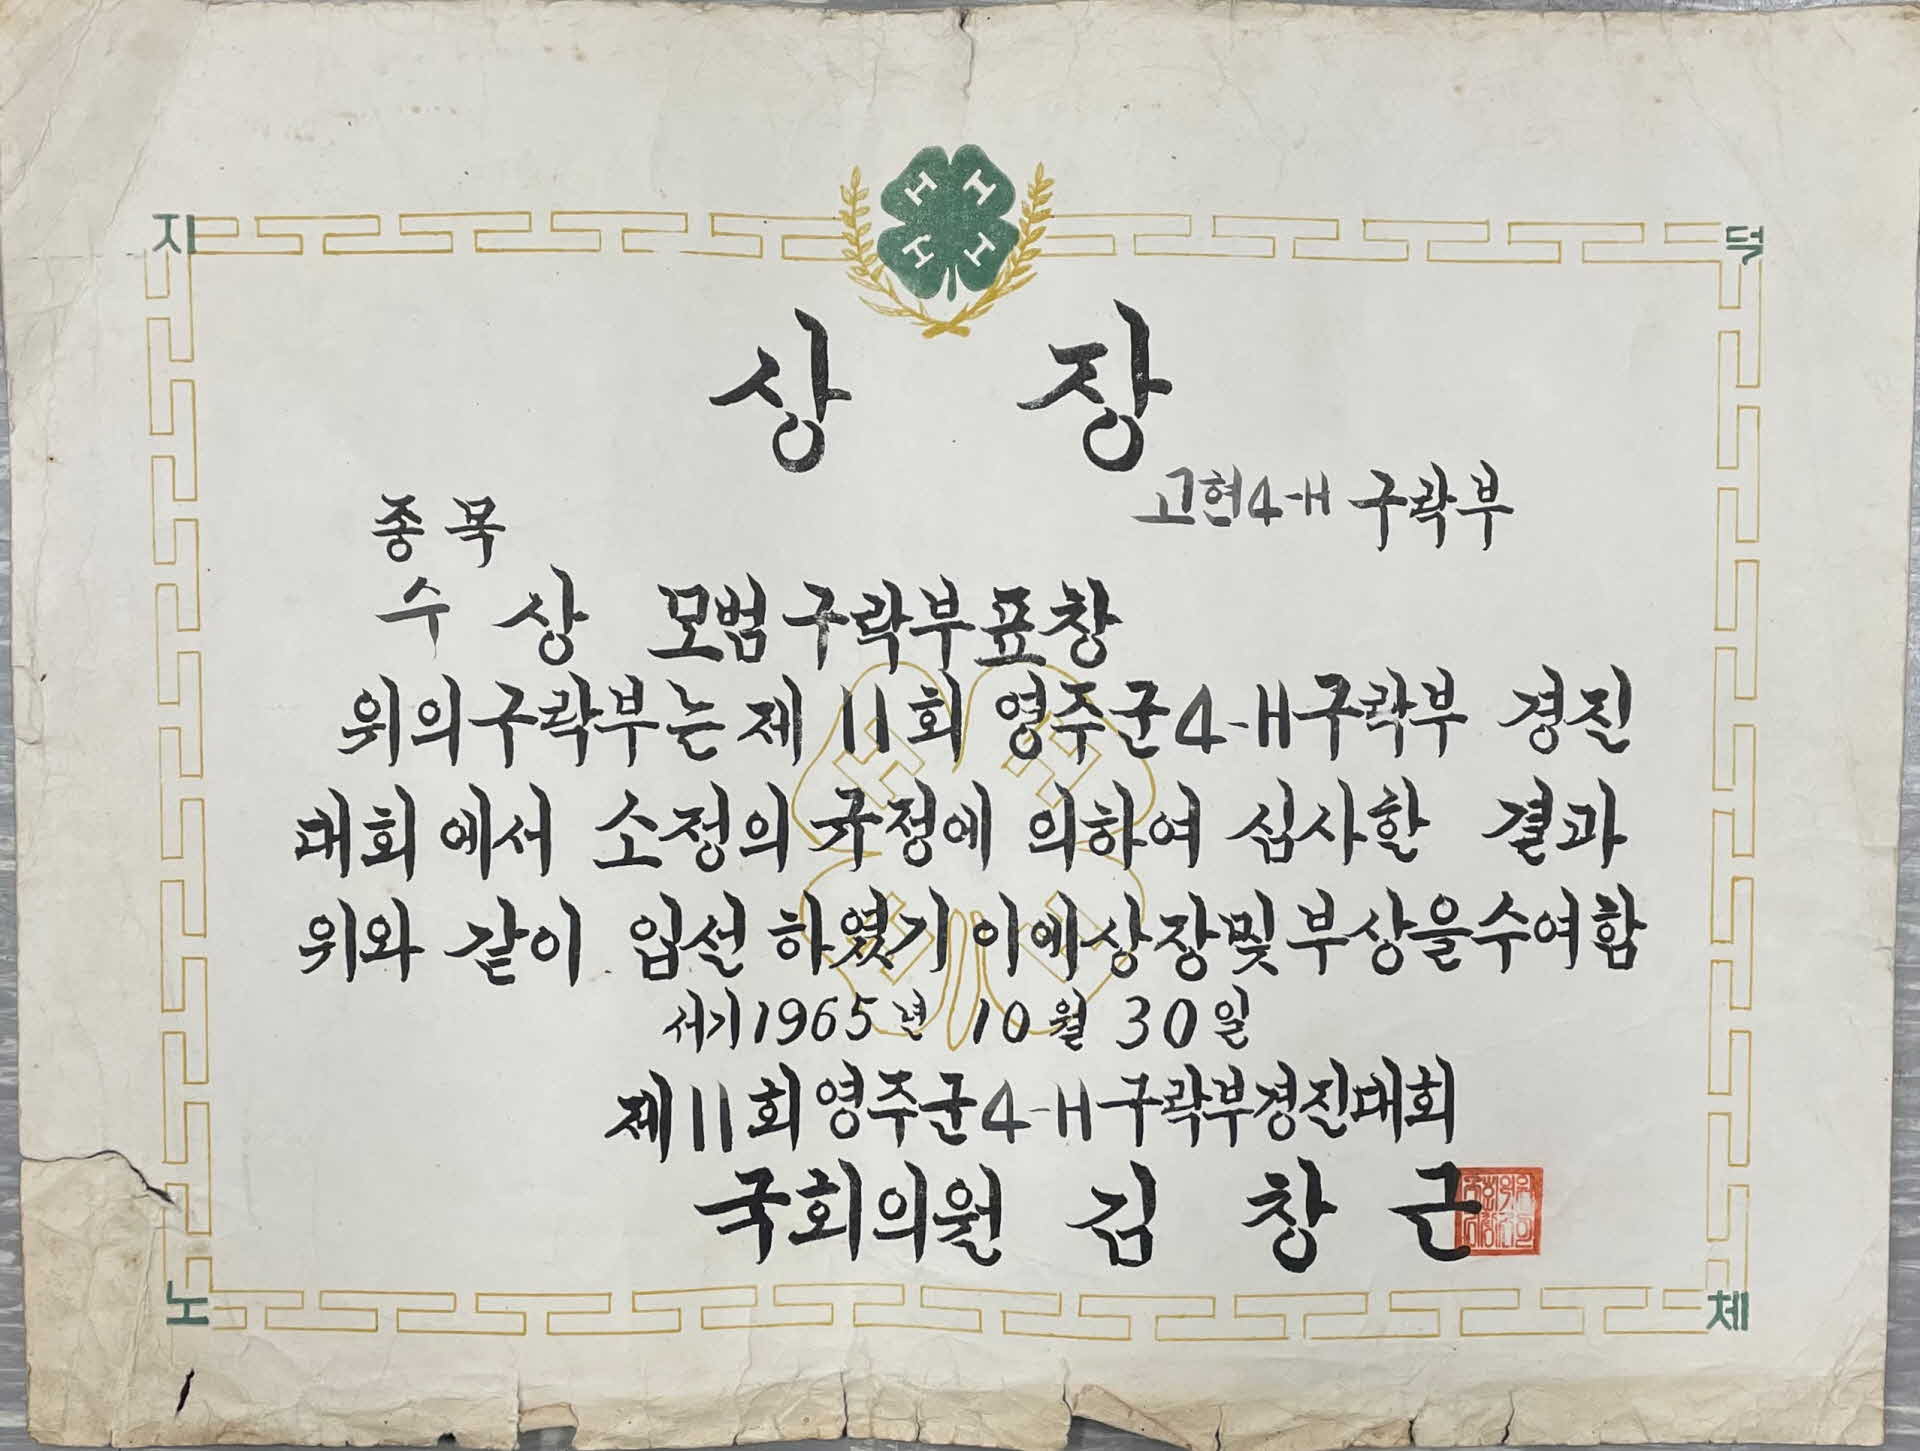 지
덕
H H H H
상 장
고현4-H 구락부
종목
수 상 모범구락부표창
위의구락부는 제 11회 영주군4-H구락부 경진
대회에서 소정의 규정에 의하여 심사할 결과
위와 같이 입선하였기 이에상장및부상을수여함
서기1965년 10월 30일
제11회영주군4-H구락부경진대회
국회의원 김 창 근
노
체